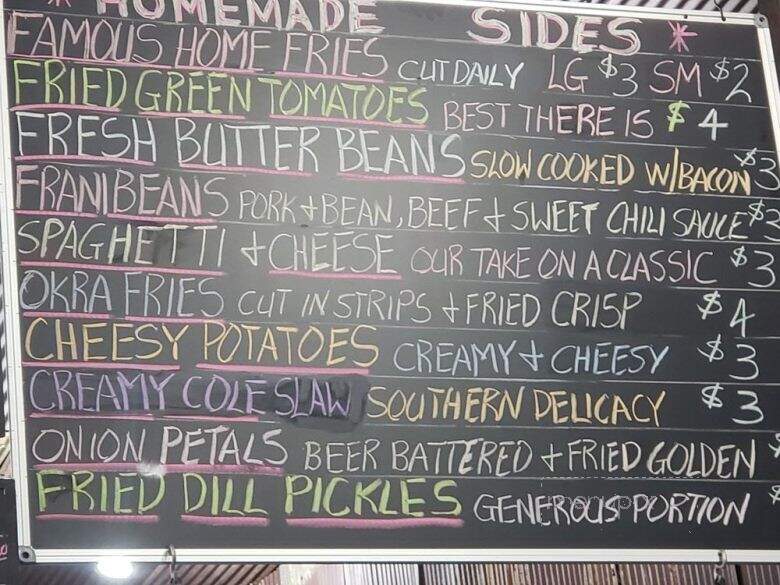 * HOMEMADE SIDES *
FAMOUS HOME FRIES CUT DAILY LG $3 SM $2
FRIED GREEN TOMATOES BEST THERE IS $4
FRESH BUTTER BEANS SLOW COOKED W/BACON $3
FRANIBEANS PORK + BEAN, BEEF + SWEET CHILI SAUCE $
SPAGHETTI + CHEESE OUR TAKE ON A CLASSIC $3
OKRA FRIES CUT IN STRIPS + FRIED CRISP $4
CHEESY POTATOES CREAMY + CHEESY $3
CREAMY COLE SLAW SOUTHERN DELICACY $3
ONION PETALS BEER BATTERED + FRIED GOLDEN
FRIED DILL PICKLES GENEROUS PORTION